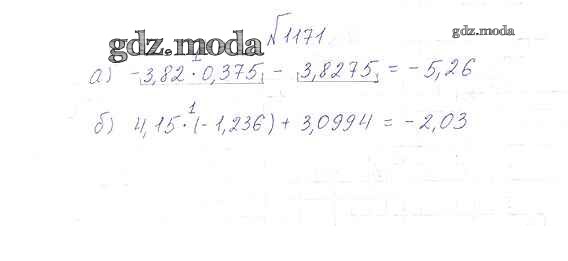 №1171
gdz.moda
gdz.moda
1
а) -3,82 · 0,375 - 3,8275 = -5,26
1
б) 4,15 · (-1,236) + 3,0994 = -2,03
gdz.moda